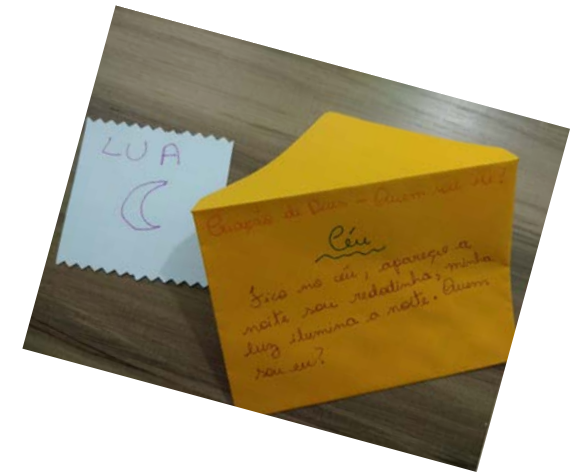 LUA
Criação de Deus - Quem sou eu?
Céu
Fico no céu, apareço a
noite sou redodinha, minha
luz ilumina a noite. Quem
sou eu?